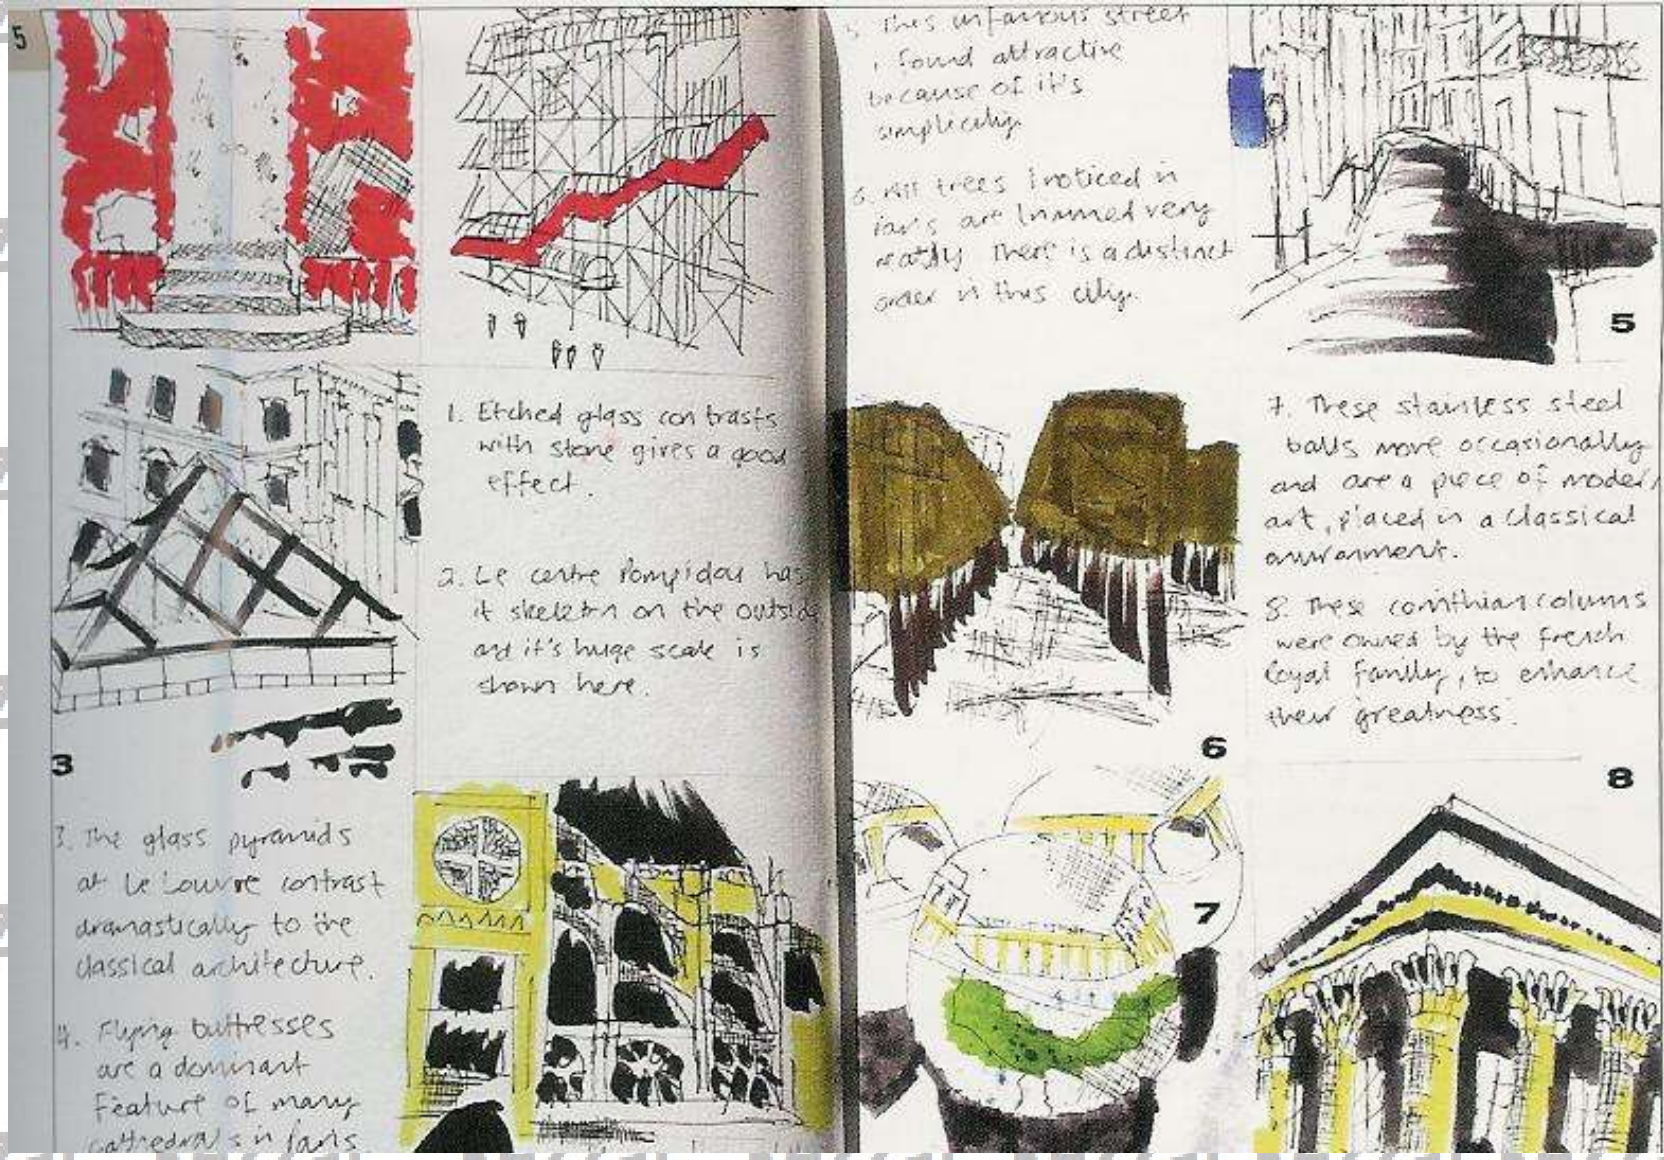 5
13
1. Etched glass contrasts
with stone gives a good
effect.
2. Le centre Pompidou has
it skeleton on the outside
and it's huge scale is
shown here.
3
3. The glass pyramids
at Le Louvre contrast
dramastically to the
classical architecture.
4. Flying buttresses
are a dominant
feature of many
cathedrals in Paris.
5 This infamous street
i found attractive
because of it's
simplicity.
6. All trees I noticed in
Paris are trimmed very
neatly There is a distinct
order in this city.
5
6
7. These stainless steel
balls move occasionally
and are a piece of modern
art, placed in a classical
8. These corinthian columns
were owned by the French
Royal Family, to enhance
their greatness.
7
8